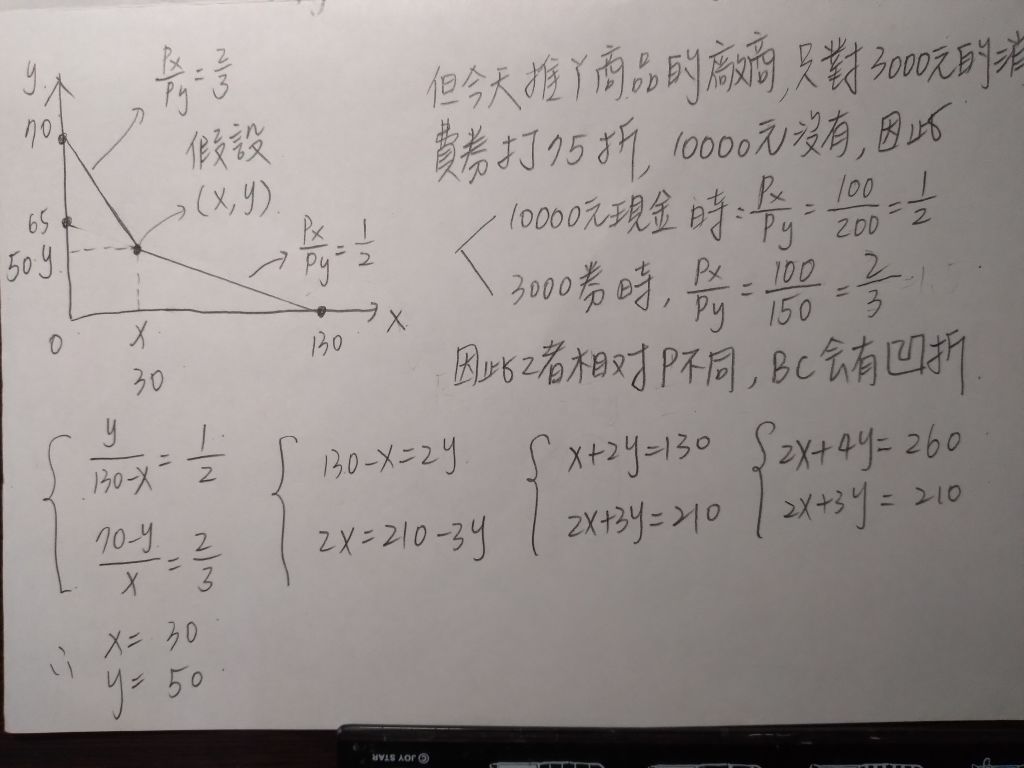 y
70
65
50 y
0
x
30
130
x
Px/Py = 2/3
假設
(x,y)
Px/Py = 1/2
但今天推丫商品的廠商,只對3000元的消
費券打75折,10000元沒有,因此
10000元現金時:Px/Py = 100/200 = 1/2
3000券時,Px/Py = 100/150 = 2/3
因此2者相对P不同,BC会有凹折.
y/(130-x) = 1/2
(70-y)/x = 2/3
130-x=2y
2x=210-3y
x+2y=130
2x+3y=210
2x+4y=260
2x+3y=210
∴ x= 30
y= 50
© JOY STAR